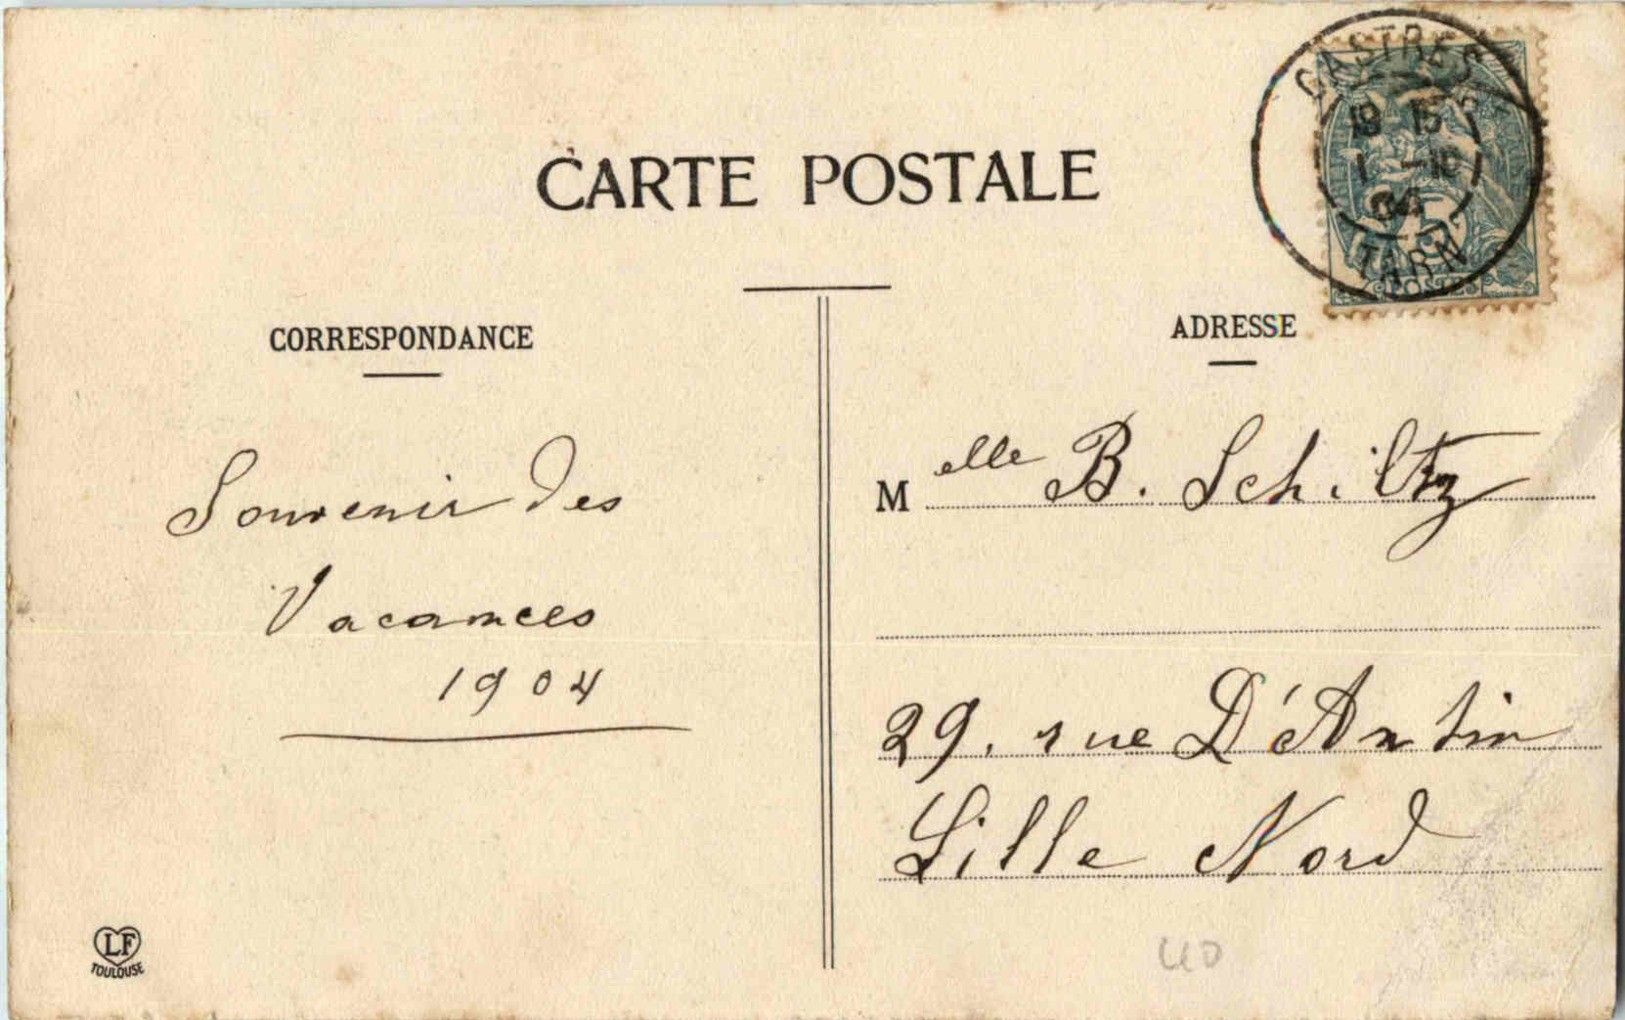 CARTE POSTALE
CASTRES
18 15
1 -10
04
TARN
POSTES
CORRESPONDANCE
Souvenir des
Vacances
1904
LF
TOULOUSE
ADRESSE
Melle B. Schiltz
29. rue D'Antin
Lille Nord